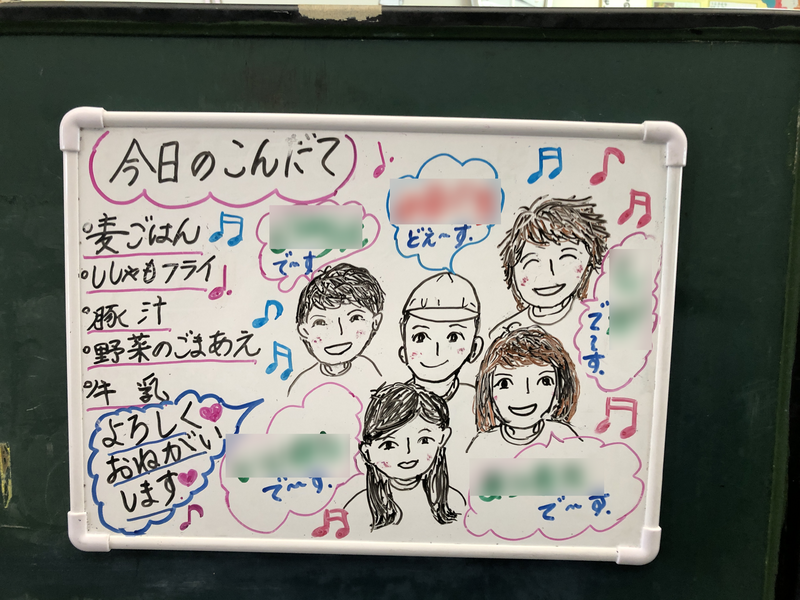 今日のこんだて
麦ごはん
ししゃもフライ
豚汁
野菜のごまあえ
牛乳
よろしく
おねがい
します
で〜す
どえ〜す.
で〜す.
で〜す.
で〜す.